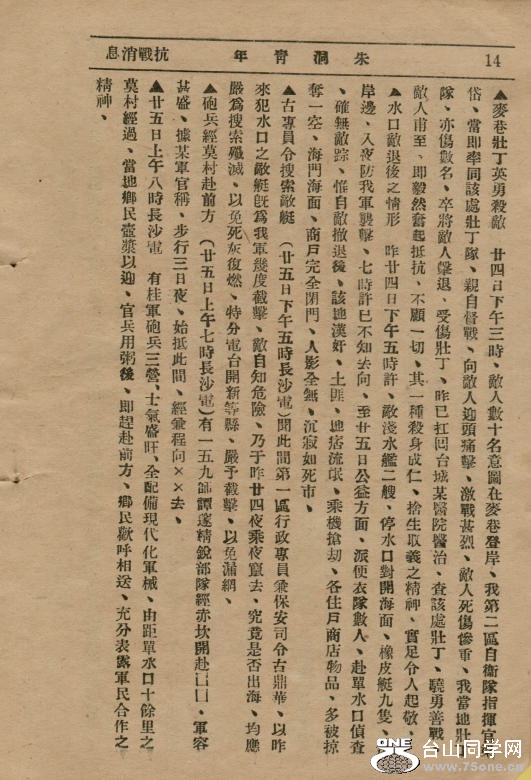 14
朱洞青年
抗戰消息
▲麥巷壯丁英勇殺敵　廿四日下午三時、敵人數十名意圖在麥巷登岸、我第二區自衛隊指揮官
岱、當即率同該處壯丁隊、親自督戰、向敵人迎頭痛擊、激戰甚烈、敵人死傷慘重、我當地壯
隊、亦傷數名、卒將敵人擊退、受傷壯丁、昨已扛囘台城某醫院醫治、查該處壯丁、驍勇善戰
敵人甫至、即毅然奮起抵抗、不顧一切、其一種殺身成仁、捨生取義之精神、實足令人起敬、
▲水口敵退後之情形　昨廿四日下午五時許、敵淺水艦二艘、停水口對開海面、橡皮艇九隻、
岸邊、入夜防我軍襲擊、七時許已不知去向、至廿五日公益方面、派便衣隊數人、赴單水口偵查
、確無敵踪、惟自敵撤退後、該地漢奸、土匪、地痞流氓、乘機搶劫、各住戶商店物品、多被掠
奪一空、海門海面、商戶完全閉門、人影全無、沉寂如死市、
▲古專員令搜索敵艇　（廿五日下午五時長沙電）聞此間第一區行政專員兼保安司令古鼎華、以昨
來犯水口之敵艇旣爲我軍幾度截擊、敵自知危險、乃于昨廿四夜乘夜竄去、究竟是否出海、均應
嚴爲搜索殲滅、以免死灰復燃、特分電台開新等縣、嚴予截擊、以免漏網、
▲砲兵經莫村赴前方　（廿五日上午七時長沙電）有一五九師譚邃精銳部隊經赤坎開赴囗囗、軍容
甚盛、據某軍官稱、步行三日夜、始抵此間、經兼程向××去、
▲廿五日上午八時長沙電　有桂軍砲兵三營、士氣盛旺、全配備現代化軍械、由距單水口十餘里之
莫村經過、當地鄉民壺漿以迎、官兵用粥後、即趕赴前方、鄉民歡呼相送、充分表露軍民合作之
精神、
ONE
台山同学网
www.75one.cn